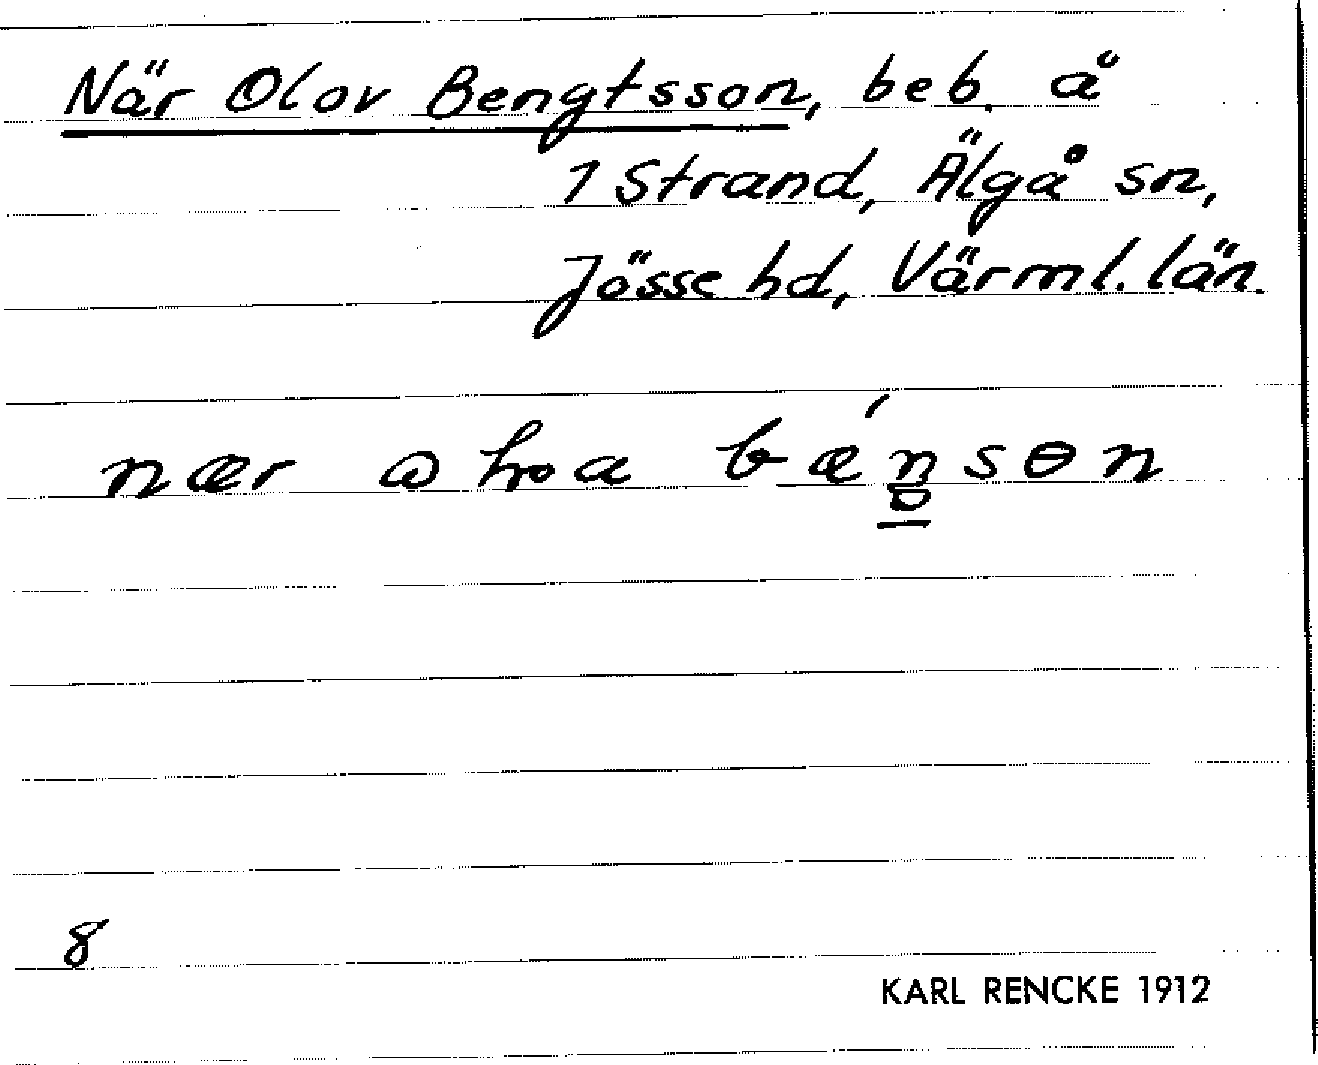 När Olov Bengtsson, beb. å
1 Strand, Älgå sn,
Jösse hd, Värml. län.
nær
8
KARL RENCKE 1912